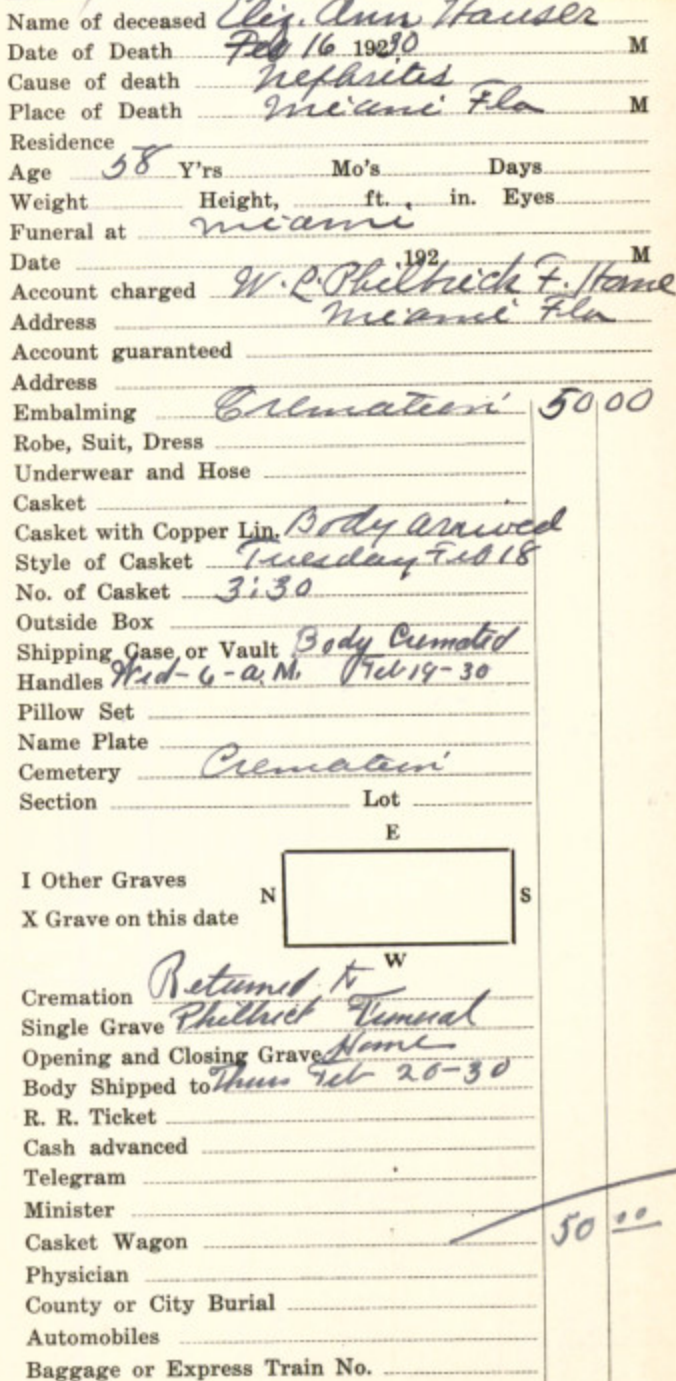 Name of deceased Eliz. Ann Hauser
Date of Death Feb 16 1930 M
Cause of death Nephrites
Place of Death Miami Fla M
Residence
Age 58 Y'rs Mo's Days
Weight Height, ft. in. Eyes
Funeral at Miami
Date , 192 M
Account charged W. L. Philbrick F. Home
Address Miami Fla
Account guaranteed
Address
Embalming Cremation 50 00
Robe, Suit, Dress
Underwear and Hose
Casket
Casket with Copper Lin. Body arrived
Style of Casket Tuesday Feb 18
No. of Casket 3:30
Outside Box
Shipping Case or Vault Body Cremated
Handles Wed - 6 - a.M. Feb 19-30
Pillow Set
Name Plate
Cemetery Cremation
Section Lot
E
I Other Graves
N S
X Grave on this date
W
Cremation Returned to
Single Grave Philbrick Funeral
Opening and Closing Grave Home
Body Shipped to Thurs Feb 20-30
R. R. Ticket
Cash advanced
Telegram
Minister
Casket Wagon 50 00
Physician
County or City Burial
Automobiles
Baggage or Express Train No.